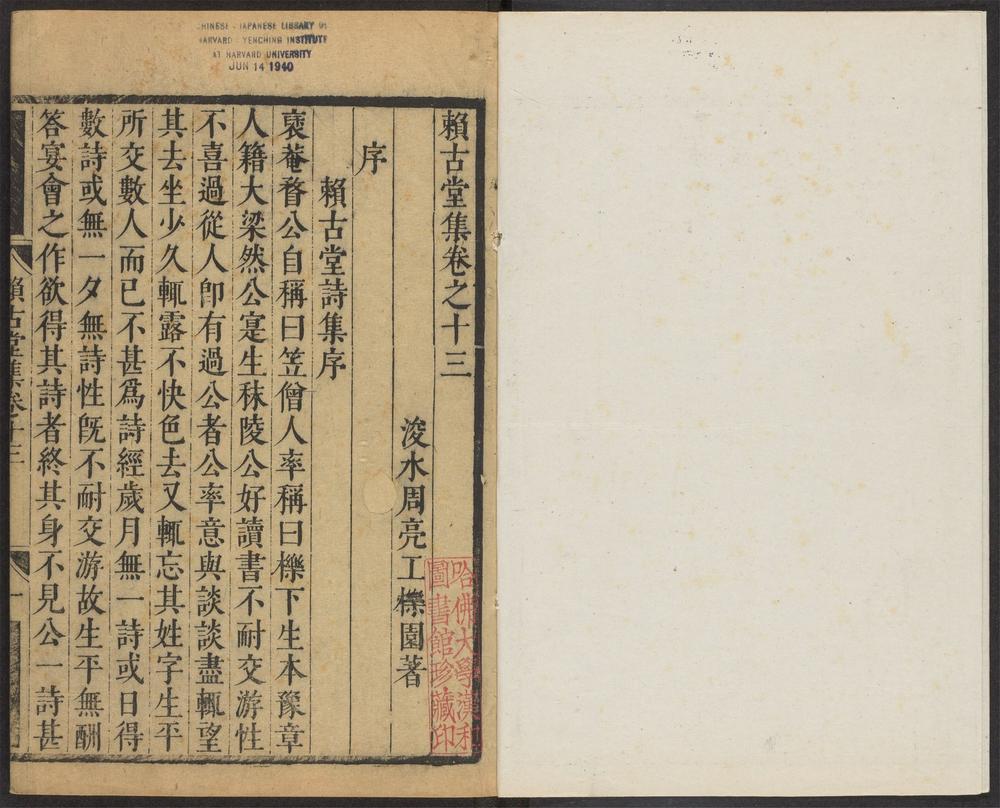 CHINESE - JAPANESE LIBRARY OF
HARVARD - YENCHING INSTITUTE
AT HARVARD UNIVERSITY
JUN 14 1940
賴古堂集卷之十三
浚水周亮工櫟園著
序
賴古堂詩集序
褱菴瞀公自稱曰笠僧人率稱曰櫟下生本豫章
人籍大梁然公寔生秣陵公好讀書不耐交游性
不喜過從人卽有過公者公率意與談談盡輒望
其去坐少久輒露不快色去又輒忘其姓字生平
所交數人而已不甚爲詩經歲月無一詩或日得
數詩或無一夕無詩性旣不耐交游故生平無酬
答宴會之作欲得其詩者終其身不見公一詩甚
賴古堂集卷十三
一
哈佛大學漢和
圖書館珍藏印